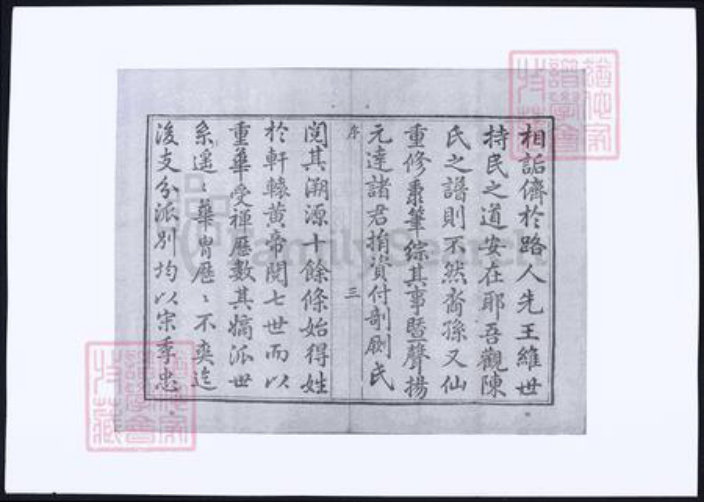 相詬儕於路人先王維世
持民之道安在耶吾觀陳
氏之譜則不然裔孫又仙
重修秉筆綜其事暨聲揚
元達諸君捐貲付剞劂氏
序 三
閱其溯源十餘條始得姓
於軒轅黃帝閱七世而以
重華受禪歷數其嫡派世
系遙〻華胄歷〻不爽迄
後支分派別均以宋季忠
猶他家譜學會特藏
猶他家譜學會特藏
FamilySearch